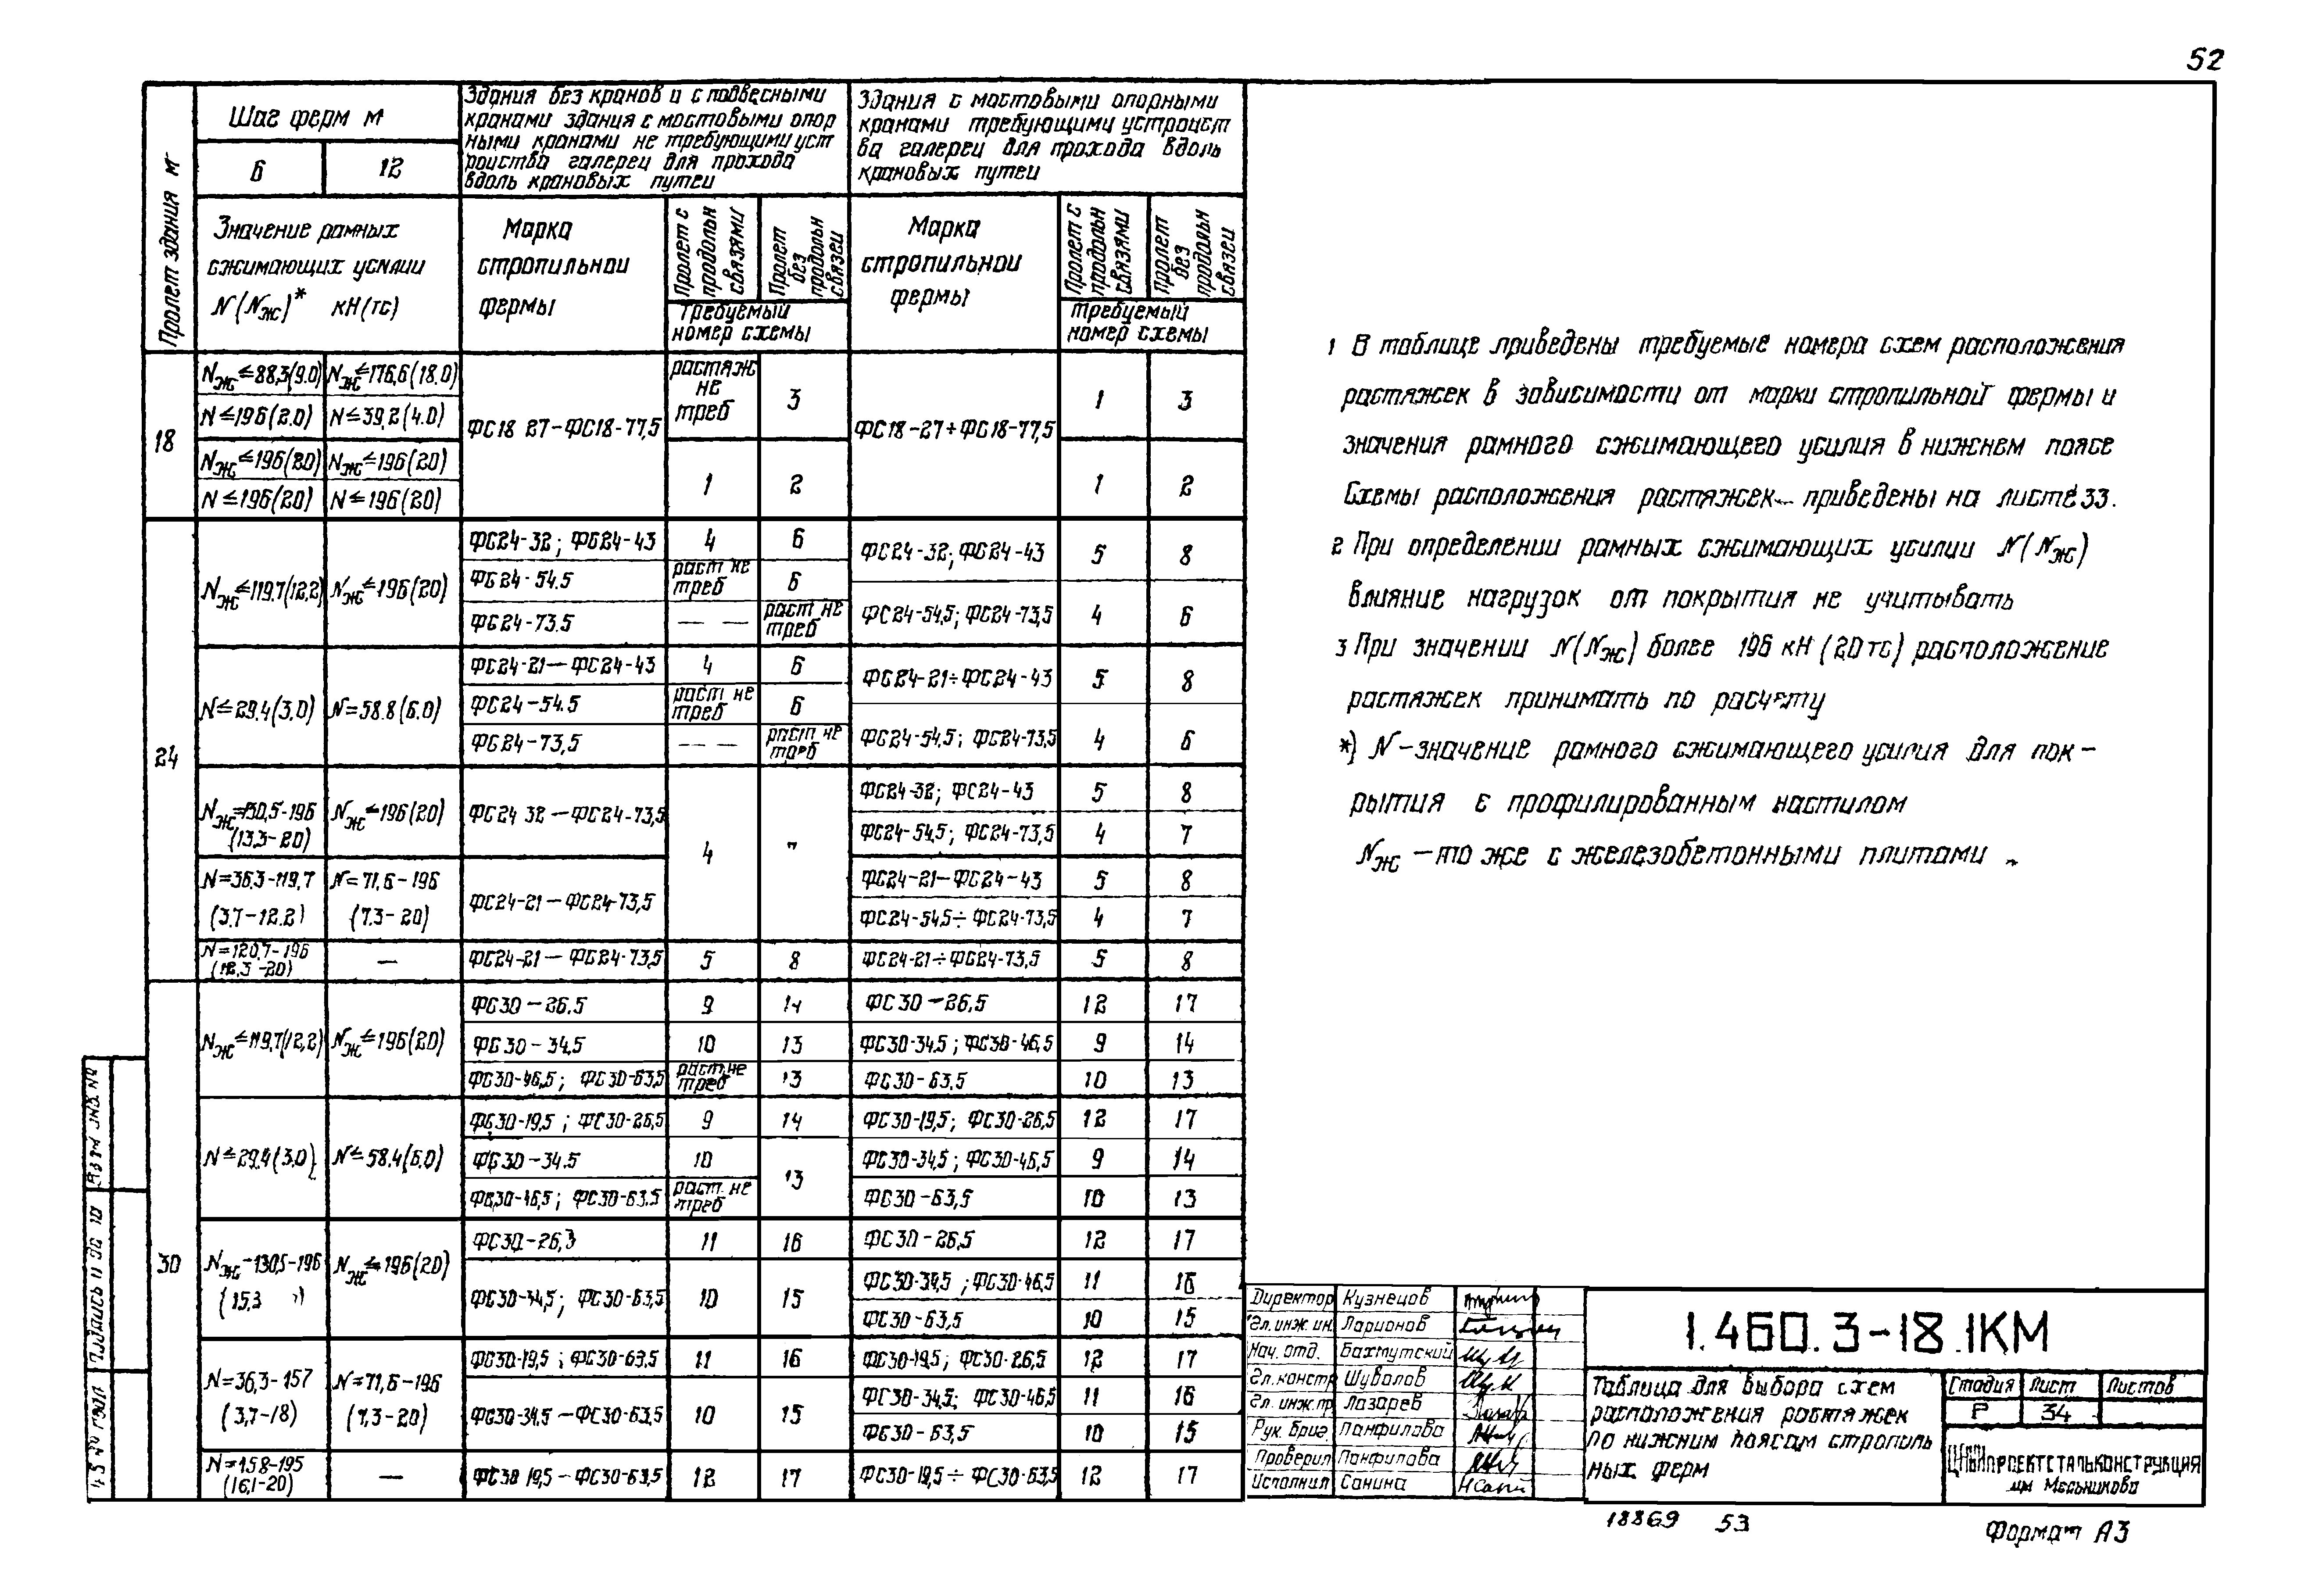 52
Пролет здания м
Шаг ферм м
6 12
Здания без кранов и с подвесными
кранами здания с мостовыми опор
ными кранами не требующими уст
ройства галереи для прохода
вдоль крановых путей
Здания с мостовыми опорными
кранами требующими устройст
ва галереи для прохода вдоль
крановых путей
Значение рамных
сжимающих усилии
N(Nж)* кН(тс)
Марка
стропильной
фермы
Пролет с
продольн
связями
Пролет
без
продольн
связей
Требуемый
номер схемы
Марка
стропильной
фермы
Пролет с
продольн
связями
Пролет
без
продольн
связей
Требуемый
номер схемы
18
Nж≤88,3(9.0) Nж≤176,6(18.0)
N≤196(2.0) N≤39,2(4.0)
Nж≤196(20) Nж≤196(20)
N≤196(20) N≤196(20)
ФС18 27–ФС18-77,5
растяж
не
треб
3
1 2
ФС18-27÷ФС18-77,5
1 3
1 2
24
Nж≤119.7(12,2) Nж≤196(20)
ФС24-32; ФС24-43 4 6
ФС24-54.5 раст не
треб 6
ФС24-73.5 — — раст не
треб
ФС24-32; ФС24-43 5 8
ФС24-54,5; ФС24-73,5 4 6
N≤29.4(3.0) N=58.8(6.0)
ФС24-21—ФС24-43 4 6
ФС24-54.5 раст не
треб 6
ФС24-73,5 — — раст не
треб
ФС24-21÷ФС24-43 5 8
ФС24-54,5; ФС24-73,5 4 6
Nж=130,5-196
(13,3-20)
Nж≤196(20)
ФС24 32—ФС24-73,5
4 "
ФС24-32; ФС24-43 5 8
ФС24-54,5; ФС24-73,5 4 7
N=36,3-119,7
(3.7-12.2)
N=71,6-196
(7.3-20)
ФС24-21—ФС24-73,5
ФС24-21—ФС24-43 5 8
ФС24-54,5÷ФС24-73,5 4 7
N=120,7-196
(12,3-20)
—
ФС24-21—ФС24-73,5 5 8 ФС24-21÷ФС24-73,5 5 8
30
Nж≤119,7(12,2) Nж≤196(20)
ФС30-26,5 9 14 ФС30-26,5 12 17
ФС30-34,5 10 13 ФС30-34,5; ФС30-46,5 9 14
ФС30-46,5; ФС30-63,5 раст не
треб 13 ФС30-63,5 10 13
N≤29,4(3.0) N≤58,4(6.0)
ФС30-19,5; ФС30-26,5 9 14 ФС30-19,5; ФС30-26,5 12 17
ФС30-34.5 10 13 ФС30-34,5; ФС30-46,5 9 14
ФС30-46,5; ФС30-63.5 раст. не
треб ФС30-63,5 10 13
Nж-130,5-196
(15,3
Nж≤196(20)
ФС30-26,3 11 16 ФС30-26,5 12 17
ФС30-34,5; ФС30-63,5 10 15
ФС30-34,5; ФС30-46,5 11 16
ФС30-63,5 10 15
N=36,3-157
(3,7-18)
N=71,6-196
(7,3-20)
ФС30-19,5; ФС30-63,5 11 16 ФС30-19,5; ФС30-26,5 12 17
ФС30-34,5—ФС30-63,5 10 15
ФС30-34,5; ФС30-46,5 11 16
ФС30-63,5 10 15
N=158-195
(16,1-20)
—
ФС30 19,5–ФС30-63,5 12 17 ФС30-19,5÷ФС30-63,5 12 17
1 В таблице приведены требуемые номера схем расположения
растяжек в зависимости от марки стропильной фермы и
значения рамного сжимающего усилия в нижнем поясе
Схемы расположения растяжек приведены на листе 33.
2 При определении рамных сжимающих усилии N(Nж)
влияние нагрузок от покрытия не учитывать
3 При значении N(Nж) более 196 кН (20тс) расположение
растяжек принимать по расчету
*) N-значение рамного сжимающего усилия для пок-
рытия с профилированным настилом
Nж —то же с железобетонными плитами
Директор Кузнецов
Гл. инж. ин. Ларионов
Нач. отд. Бахмутский
Гл. констр Шувалов
Гл. инж. пр. Лазарев
Рук. бриг. Панфилова
Проверил Панфилова
Исполнил Санина
1.460.3-18.1КМ
Таблица для выбора схем
расположения растяжек
по нижним поясам стропиль
ных ферм
Стадия Лист Листов
Р 34
ЦНИИпроектстальконструкция
им Мельникова
18869 53
Формат А3